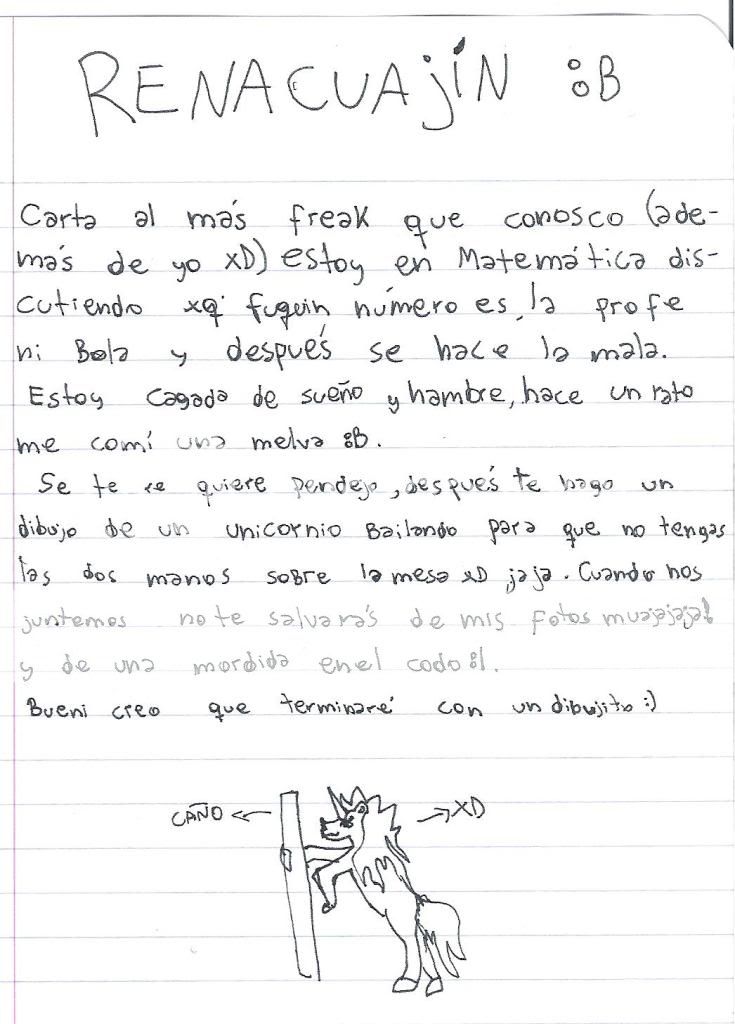 RENACUAjíN :B
Carta al más freak que conosco (ade-
más de yo xD) estoy en Matemática dis-
cutiendo xq' número es, la profe
ni Bola y después se hace la mala.
Estoy cagada de sueño y hambre, hace un rato
me comí una melva :B.
Se te re quiere pendejo, después te hago un
dibujo de un unicornio Bailando para que no tengas
las dos manos sobre la mesa xD jaja. Cuando nos
juntemos no te salvarás de mis fotos muajajaja!
y de una mordida en el codo :l.
Bueni creo que terminaré con un dibujito :)
CAÑO
XD